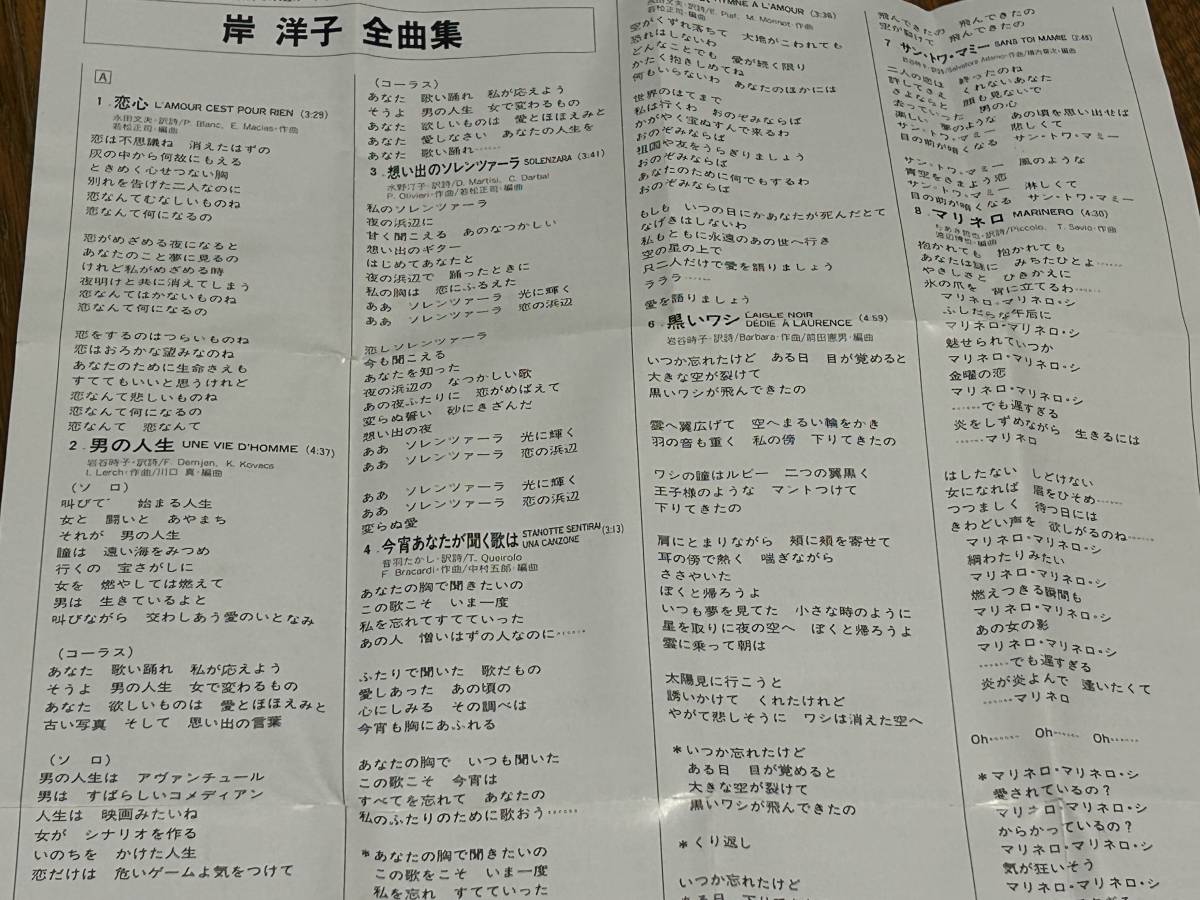 岸 洋子 全曲集
A
1. 恋心 L'AMOUR C'EST POUR RIEN (3:29)
永田文夫・訳詩/P. Blanc, E. Macias・作曲
若松正司・編曲
恋は不思議ね 消えたはずの
灰の中から何故にもえる
ときめく心せつない胸
別れを告げた二人なのに
恋なんてむなしいものね
恋なんて何になるの
恋がめざめる夜になると
あなたのこと夢に見るの
けれど私がめざめる時
夜明けと共に消えてしまう
恋なんてはかないものね
恋なんて何になるの
恋をするのはつらいものね
恋はおろかな望みなのね
あなたのために生命さえも
すててもいいと思うけれど
恋なんて悲しいものね
恋なんて何になるの
恋なんて 恋なんて
2. 男の人生 UNE VIE D'HOMME (4:37)
岩谷時子・訳詩/F. Dernjen, K. Kovacs
I. Lerch・作曲/川口 真・編曲
(ソ ロ)
叫びて 始まる人生
女と 闘いと あやまち
それが 男の人生
瞳は 遠い海をみつめ
行くの 宝さがしに
女を 燃やしては燃えて
男は 生きているよと
叫びながら 交わしあう愛のいとなみ
(コーラス)
あなた 歌い踊れ 私が応えよう
そうよ 男の人生 女で変わるもの
あなた 欲しいものは 愛とほほえみと
古い写真 そして 思い出の言葉
(ソ ロ)
男の人生は アヴァンチュール
男は すばらしいコメディアン
人生は 映画みたいね
女が シナリオを作る
いのちを かけた人生
恋だけは 危いゲームよ気をつけて
(コーラス)
あなた 歌い踊れ 私が応えよう
そうよ 男の人生 女で変わるもの
あなた 欲しいものは 愛とほほえみと
あなた 愛しなさい あなたの人生を
あなた 歌い踊れ……
3. 想い出のソレンツァーラ SOLENZARA (3:41)
水野汀子・訳詩/D. Martisi, C. Darbal
P. Olivieri・作曲/若松正司・編曲
私のソレンツァーラ
夜の浜辺に
甘く聞こえる あのなつかしい
想い出のギター
はじめてあなたと
夜の浜辺で 踊ったときに
私の胸は 恋にふるえた
ああ ソレンツァーラ 光に輝く
ああ ソレンツァーラ 恋の浜辺
恋しソレンツァーラ
今も聞こえる
あなたを知った
夜の浜辺の なつかしい歌
あの夜ふたりに 恋がめばえて
変らぬ誓い 砂にきざんだ
想い出の夜
ああ ソレンツァーラ 光に輝く
ああ ソレンツァーラ 恋の浜辺
ああ ソレンツァーラ 光に輝く
ああ ソレンツァーラ 恋の浜辺
変らぬ愛
4. 今宵あなたが聞く歌は STANOTTE SENTIRAI UNA CANZONE (3:13)
音羽たかし・訳詩/T. Queirolo
F. Bracardi・作曲/中村五郎・編曲
あなたの胸で聞きたいの
この歌こそ いま一度
私を忘れてすてていった
あの人 憎いはずの人なのに……
ふたりで聞いた 歌だもの
愛しあった あの頃の
心にしみる その調べは
今宵も胸にあふれる
あなたの胸で いつも聞いた
この歌こそ 今宵は
すべてを忘れて あなたの
私のふたりのために歌おう……
*あなたの胸で聞きたいの
この歌をこそ いま一度
私を忘れ すてていった
HYMNE A L'AMOUR (3:36)
永田文夫・訳詩/E. Piaf, M. Monnot・作曲
若松正司・編曲
空がくずれ落ちて 大地がこわれても
恐れはしないわ
どんなことでも 愛が続く限り
かたく抱きしめてね
何もいらないわ あなたのほかには
世界のはてまで
私は行くわ おのぞみならば
かがやく宝ぬすんで来るわ
おのぞみならば
祖国や友をうらぎりましょう
おのぞみならば
あなたのために何でもするわ
おのぞみならば
もしも いつの日にかあなたが死んだとて
なげきはしないわ
私もともに永遠のあの世へ行き
空の星の上で
只二人だけで愛を語りましょう
ラララ……
愛を語りましょう
6. 黒いワシ L'AIGLE NOIR DÉDIE À LAURENCE (4:59)
岩谷時子・訳詩/Barbara・作曲/前田憲男・編曲
いつか忘れたけど ある日 目が覚めると
大きな空が裂けて
黒いワシが飛んできたの
雲へ翼広げて 空へまるい輪をかき
羽の音も重く 私の傍 下りてきたの
ワシの瞳はルビー 二つの翼黒く
王子様のような マントつけて
下りてきたの
肩にとまりながら 頬に頬を寄せて
耳の傍で熱く 喘ぎながら
ささやいた
ぼくと帰ろうよ
いつも夢を見てた 小さな時のように
星を取りに夜の空へ ぼくと帰ろうよ
雲に乗って朝は
太陽見に行こうと
誘いかけて くれたけれど
やがて悲しそうに ワシは消えた空へ
*いつか忘れたけど
ある日 目が覚めると
大きな空が裂けて
黒いワシが飛んできたの
*くり返し
いつか忘れたけど
ある日 目が覚めると
飛んできたの 飛んできたの
空が裂けて 飛んできたの
7. サン・トワ・マミー SANS TOI MAMIE (2:45)
岩谷時子・訳詩/Salvatore Adamo・作曲
二人の恋は 終ったのね
許してさえ くれないあなた
さよならと 顔も見ないで
去っていった 男の心
楽しい 夢のような あの頃を思い出せば
サン・トワ・マミー 悲しくて
目の前が暗くなる サン・トワ・マミー
サン・トワ・マミー 風のような
青空をさまよう恋
サン・トワ・マミー 淋しくて
目の前が暗くなる サン・トワ・マミー
8. マリネロ MARINERO (4:30)
ちあき哲也・訳詩/Piccolo, T. Savio・作曲
渡辺博也・編曲
抱かれても 抱かれても
あなたは謎に みちたひとよ……
やさしさと ひきかえに
氷の爪を 背に立てるわ……
マリネロ・マリネロ・シ
ふしだらな午后に
マリネロ・マリネロ・シ
魅せられていつか
マリネロ・マリネロ・シ
金曜の恋
マリネロ・マリネロ・シ
……でも遅すぎる
炎をしずめながら 生きるには
……マリネロ
はしたない しどけない
女になれば 眉をひそめ……
つつましく 待つ日には
きわどい声を 欲しがるのね……
マリネロ・マリネロ・シ
綱わたりみたい
マリネロ・マリネロ・シ
燃えつきる瞬間も
マリネロ・マリネロ・シ
あの女の影
マリネロ・マリネロ・シ
……でも遅すぎる
炎が炎よんで 逢いたくて
……マリネロ
Oh…… Oh…… Oh……
*マリネロ・マリネロ・シ
愛されているの?
マリネロ・マリネロ・シ
からかっているの?
マリネロ・マリネロ・シ
気が狂いそう
マリネロ・マリネロ・シ